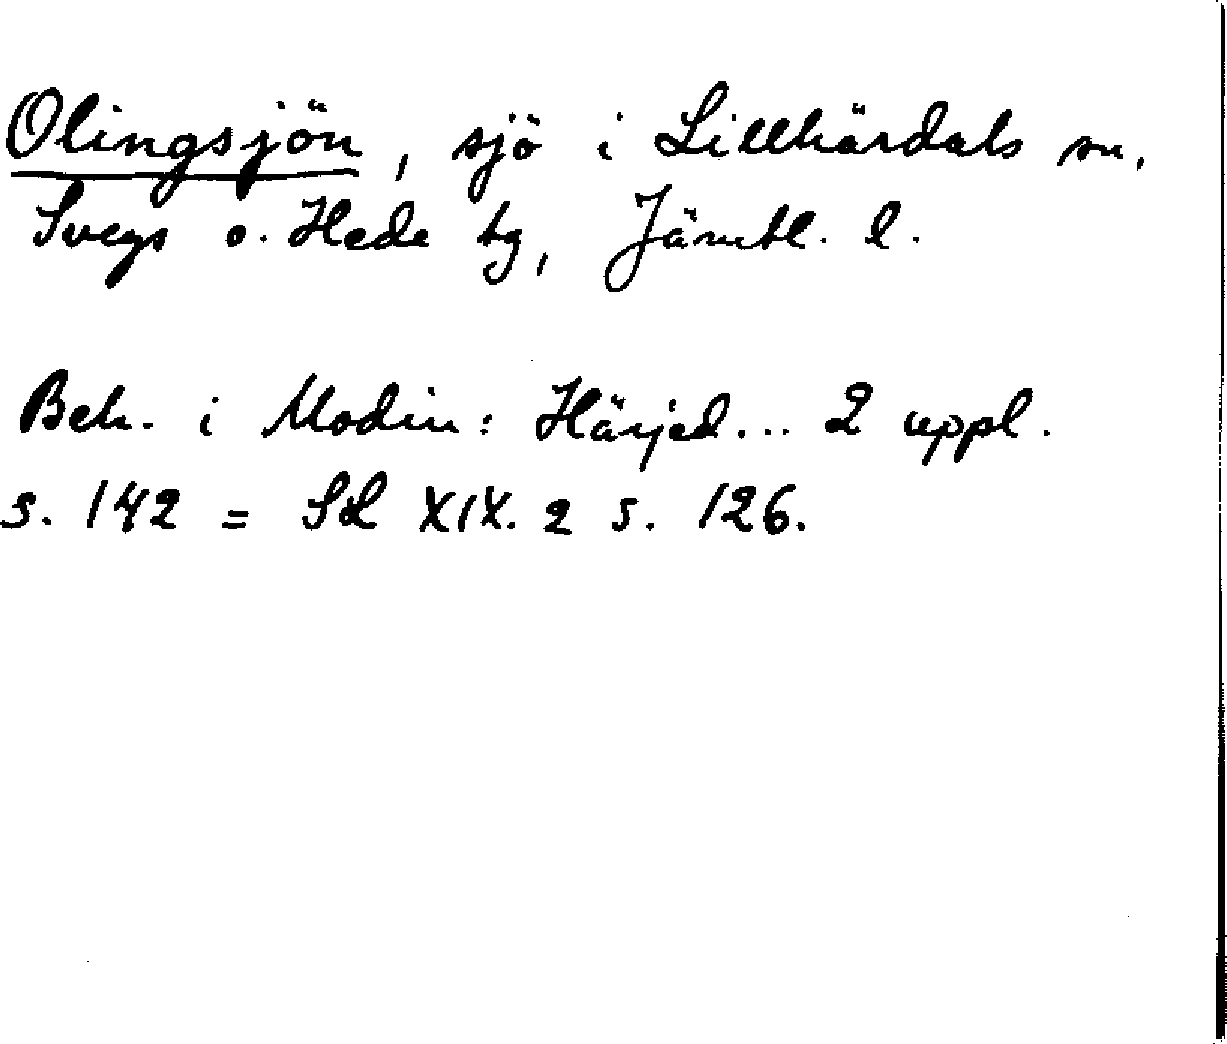 Olingsjön, sjö i Lillhärdals sn,
Svegs o. Hede tg, Jämtl. l.
Beh. i Modin: Härjed... 2 uppl.
s. 142 = SL XIX. 2 s. 126.